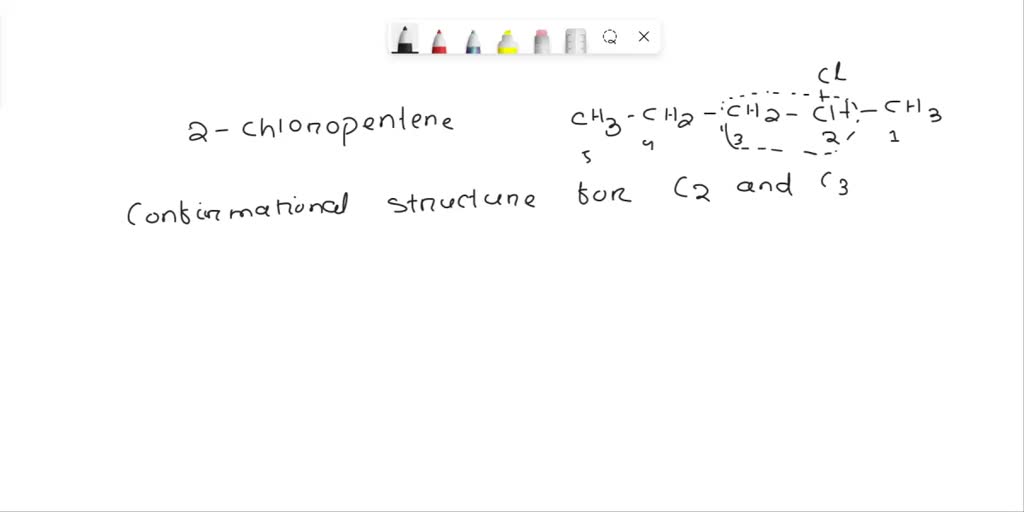 Cl
2-chloropentene CH3-CH2-CH2-CH-CH3
5 4 3 2 1
Confirmational structure for C2 and C3